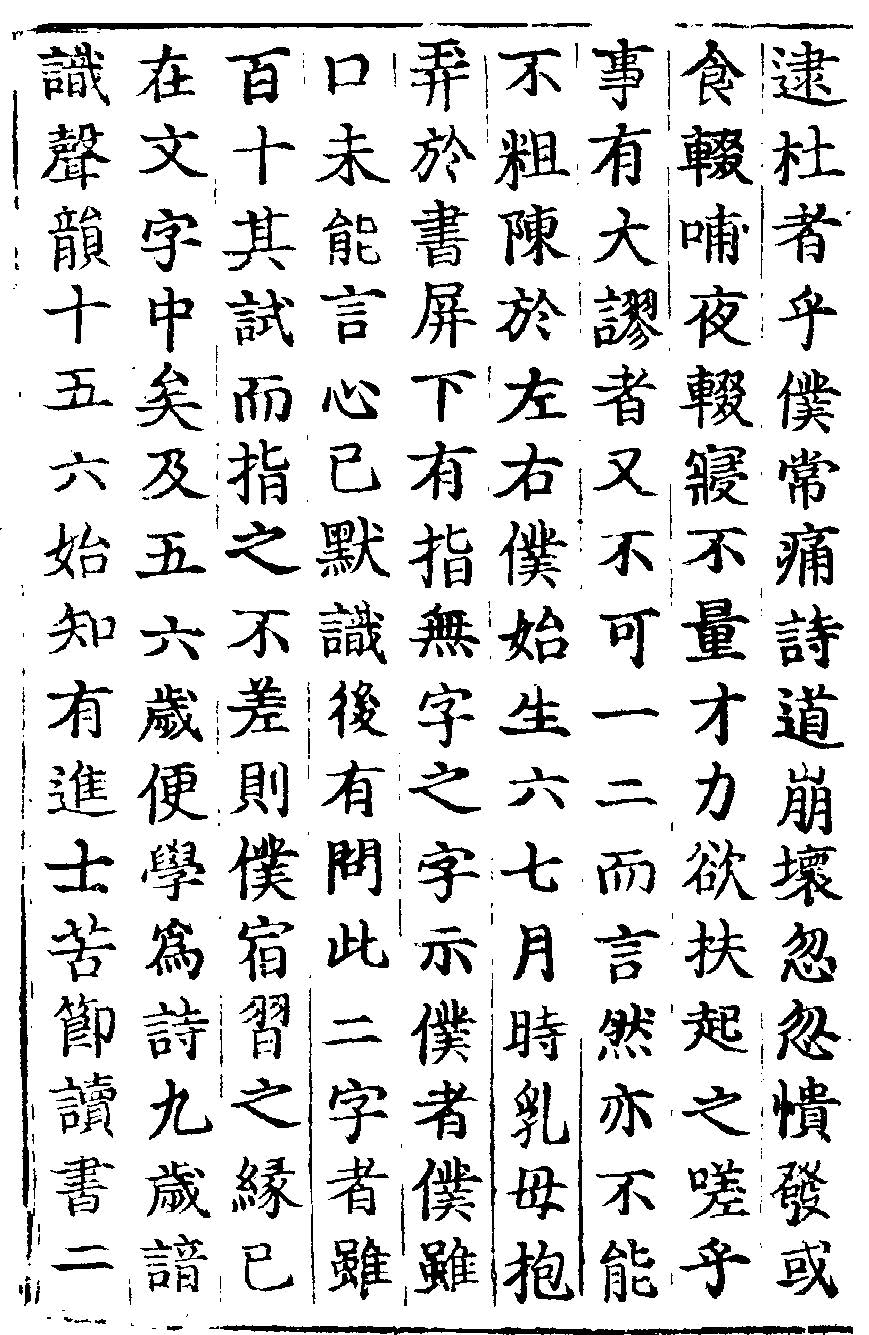 逮杜者乎僕常痛詩道崩壞忽忽憒發或
食輟哺夜輟寢不量才力欲扶起之嗟乎
事有大謬者又不可一二而言然亦不能
不粗陳於左右僕始生六七月時乳母抱
弄於書屏下有指無字之字示僕者僕雖
口未能言心已默識後有問此二字者雖
百十其試而指之不差則僕宿習之緣已
在文字中矣及五六歲便學爲詩九歲諳
識聲韻十五六始知有進士苦節讀書二